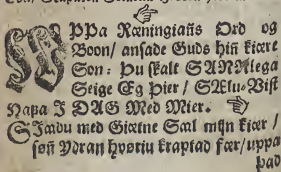 UPpa Ræningians Ord og
Boon/ ansade Guds hin kiære
Son: Þu skalt SANNlega
Seige Eg Þier/ SÆlu-Vist
Hafa I DAG Med Mier.
SJædu med Giætne Sæl mijn kiær/
sem Ydran hvoriu kraptad fær/ uppa
þad